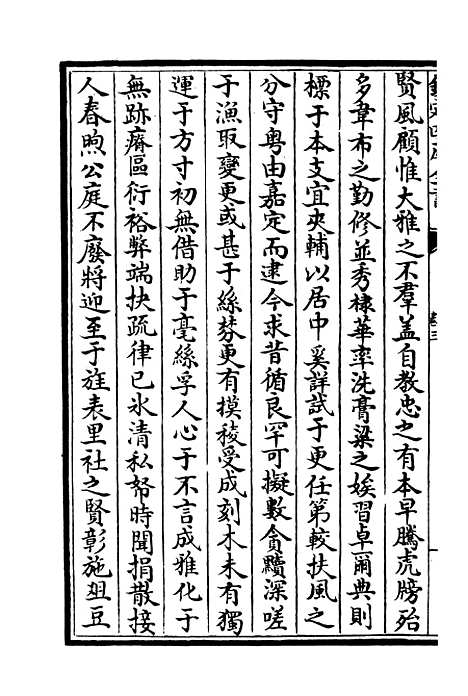 欽定四庫全書
卷三
賢風顧惟大雅之不羣盖自教忠之有本早騰虎牓殆
多韋布之勤修並秀棣華率洗膏粱之娭習卓爾典則
標于本支宜夾輔以居中奚詳試于更任第較扶風之
分守粤由嘉定而逮今求昔循良罕可擬數貪黷深嗟
于漁取變更或甚于絲棼更有摸稜受成刻木未有獨
運于方寸初無借助于毫絲孚人心于不言成雅化于
無跡瘠區衍裕弊端扶疏律已氷清私帑時聞捐散接
人春煦公庭不廢將迎至于旌表里社之賢彰施俎豆